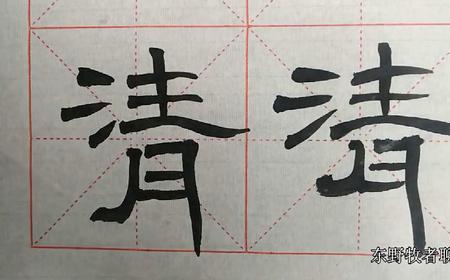 清清
东野牧者聊